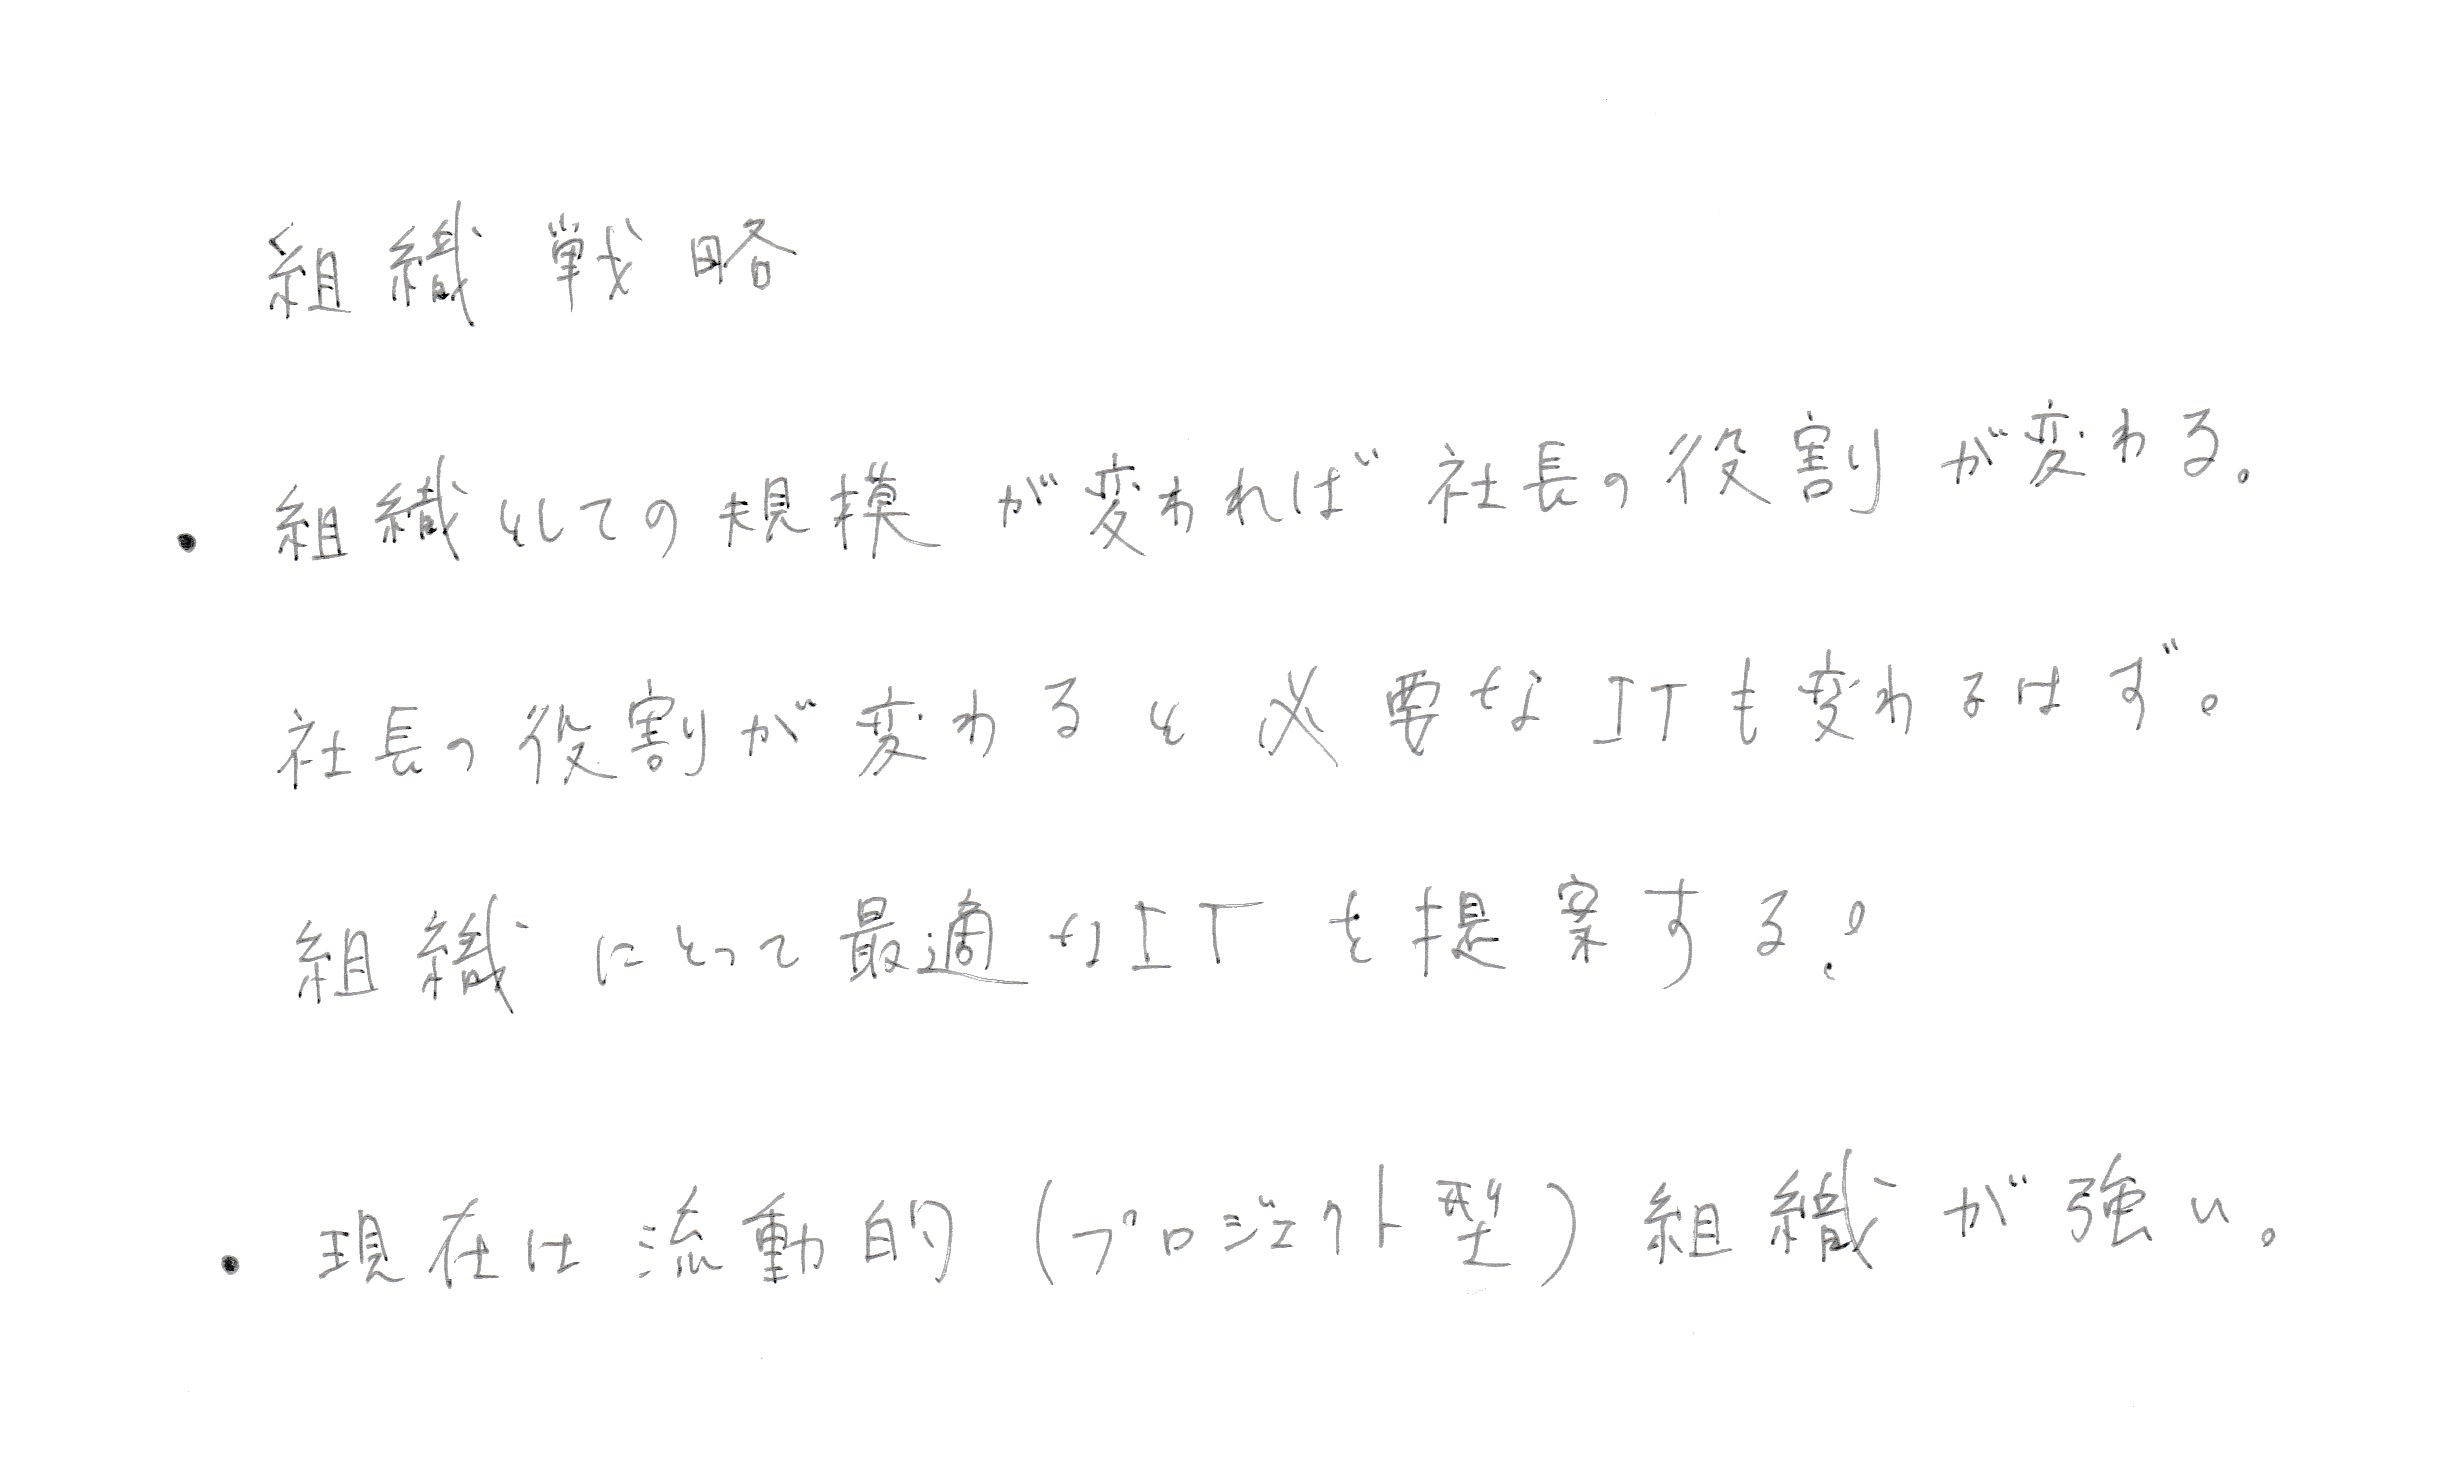 組織戦略
・組織としての規模が変われば社長の役割が変わる。
社長の役割が変わると必要なITも変わるはず。
組織にとって最適なITを提案する?
・現在は流動的(プロジェクト型)組織が強い。